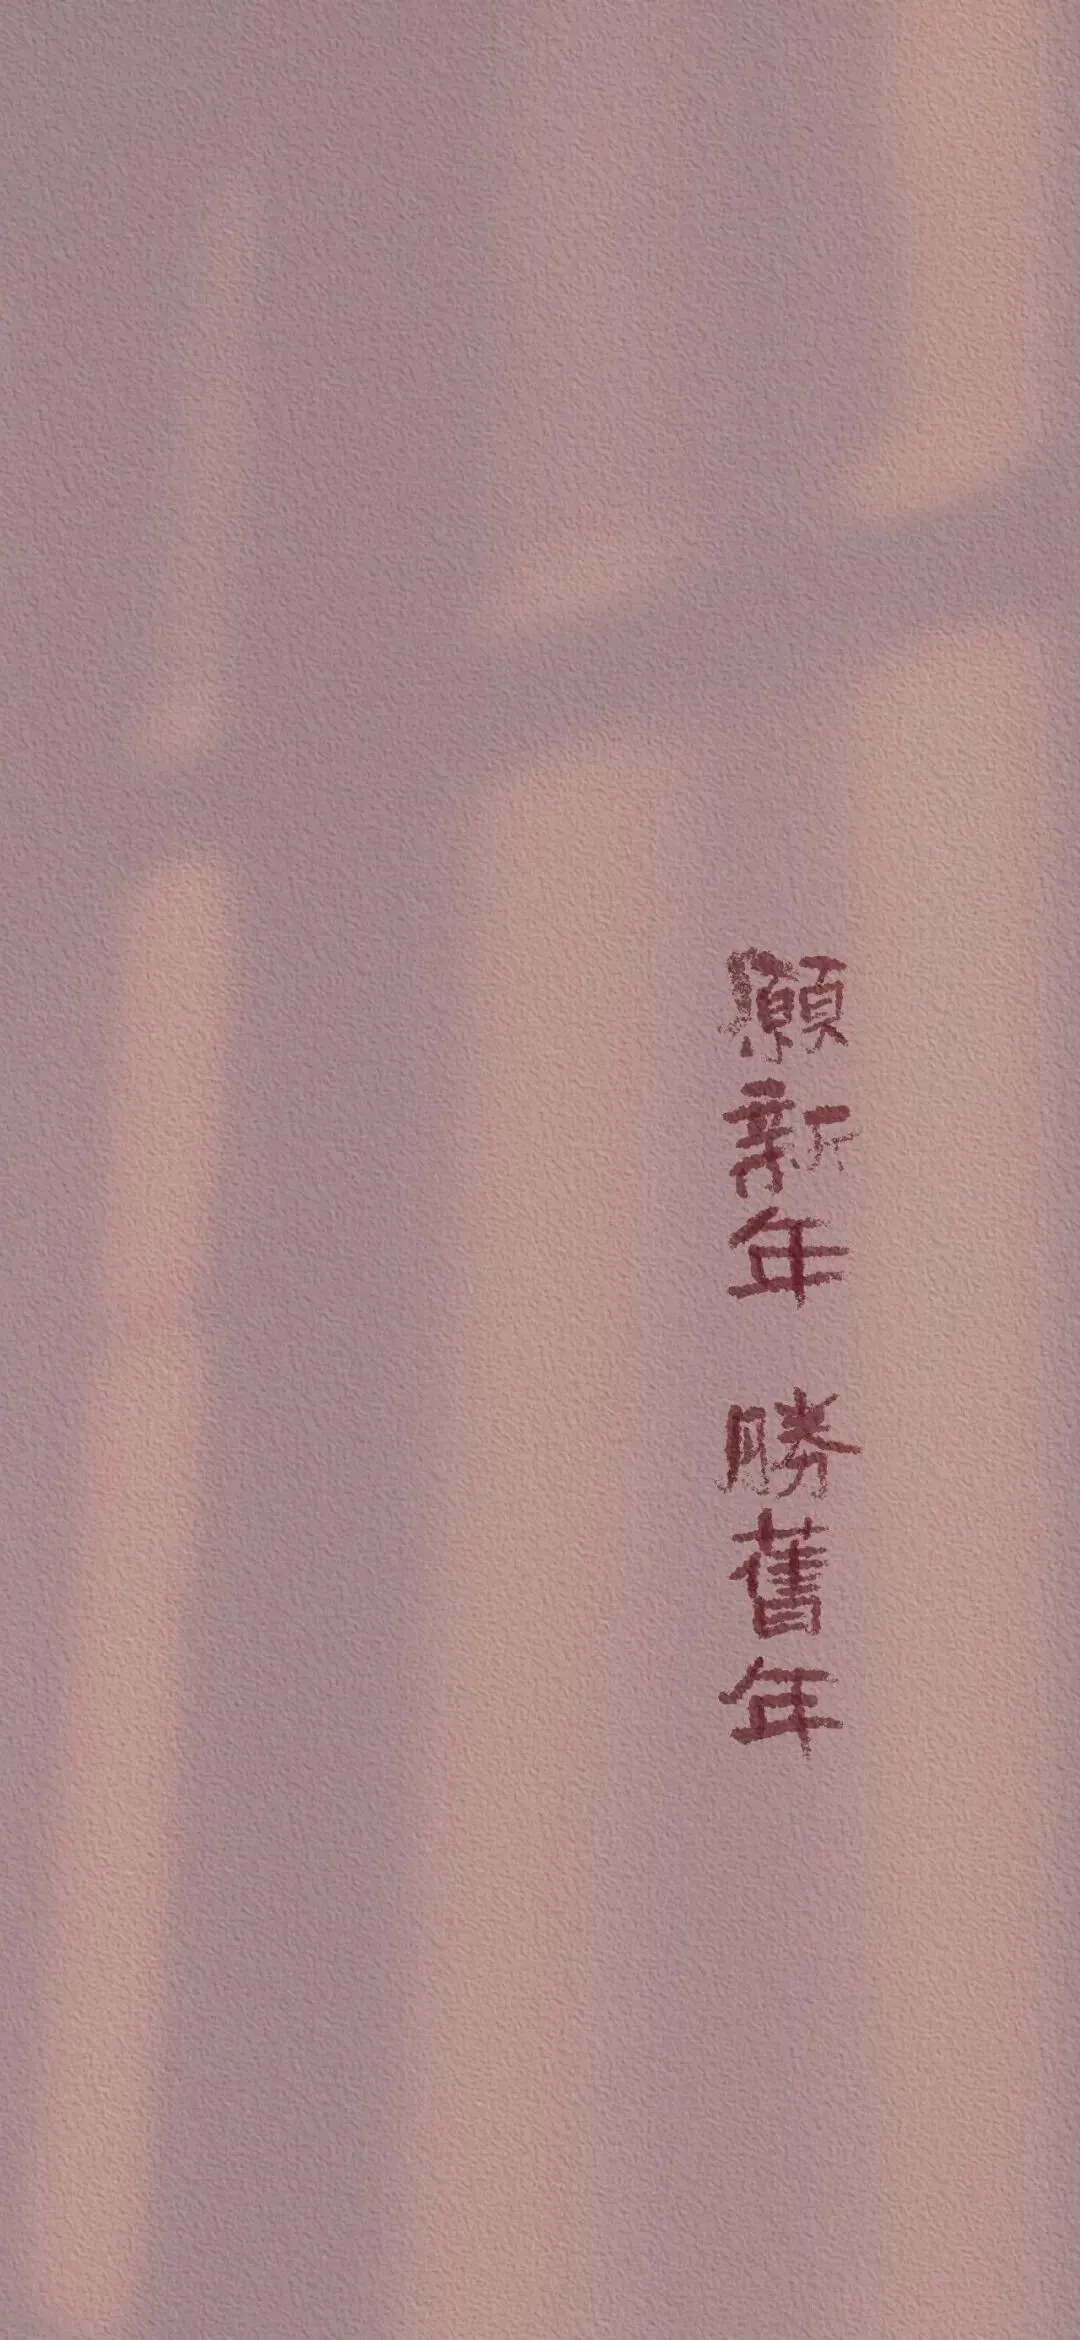 願新年 勝舊年